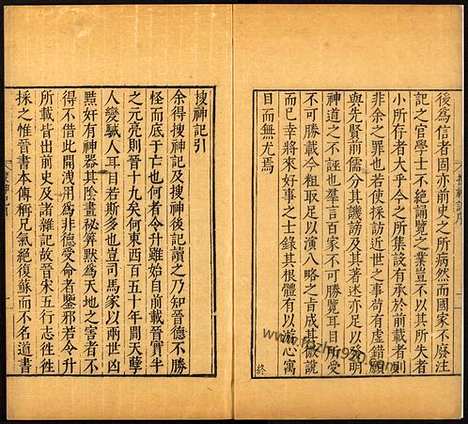 後爲信者固亦前史之所病然而國家不廢注
記之官學士不絕誦覽之業豈不以其所失者
小所存者大乎今之所集設有承於前載者則
非余之罪也若使採訪近世之事苟有虛錯願
與先賢前儒分其譏謗及其著述亦足以發明
神道之不誣也羣言百家不可勝覽耳目所受
不可勝載今粗取足以演八略之旨成其微說
而已幸將來好事之士錄其根體有以游心寓
目而無尤焉
終
搜神記引
余得搜神記及搜神後記讀之乃知晉德不勝
怪而底于亡也何者令升雖始自前載晉實半
之元亮則晉十九矣何東西百五十年間天孽
人變駴人耳目若斯多也豈司馬家以兩世凶
黠奸有神器其陰畫秘筭默爲天地之害者不
得不借此開洩用爲非德受命者鑒邪若令升
所載皆出前史及諸雜記故晉宋五行志往往
採之惟晉書本傳楙兄氣絕復蘇而不名道書
www.fozhu920.com